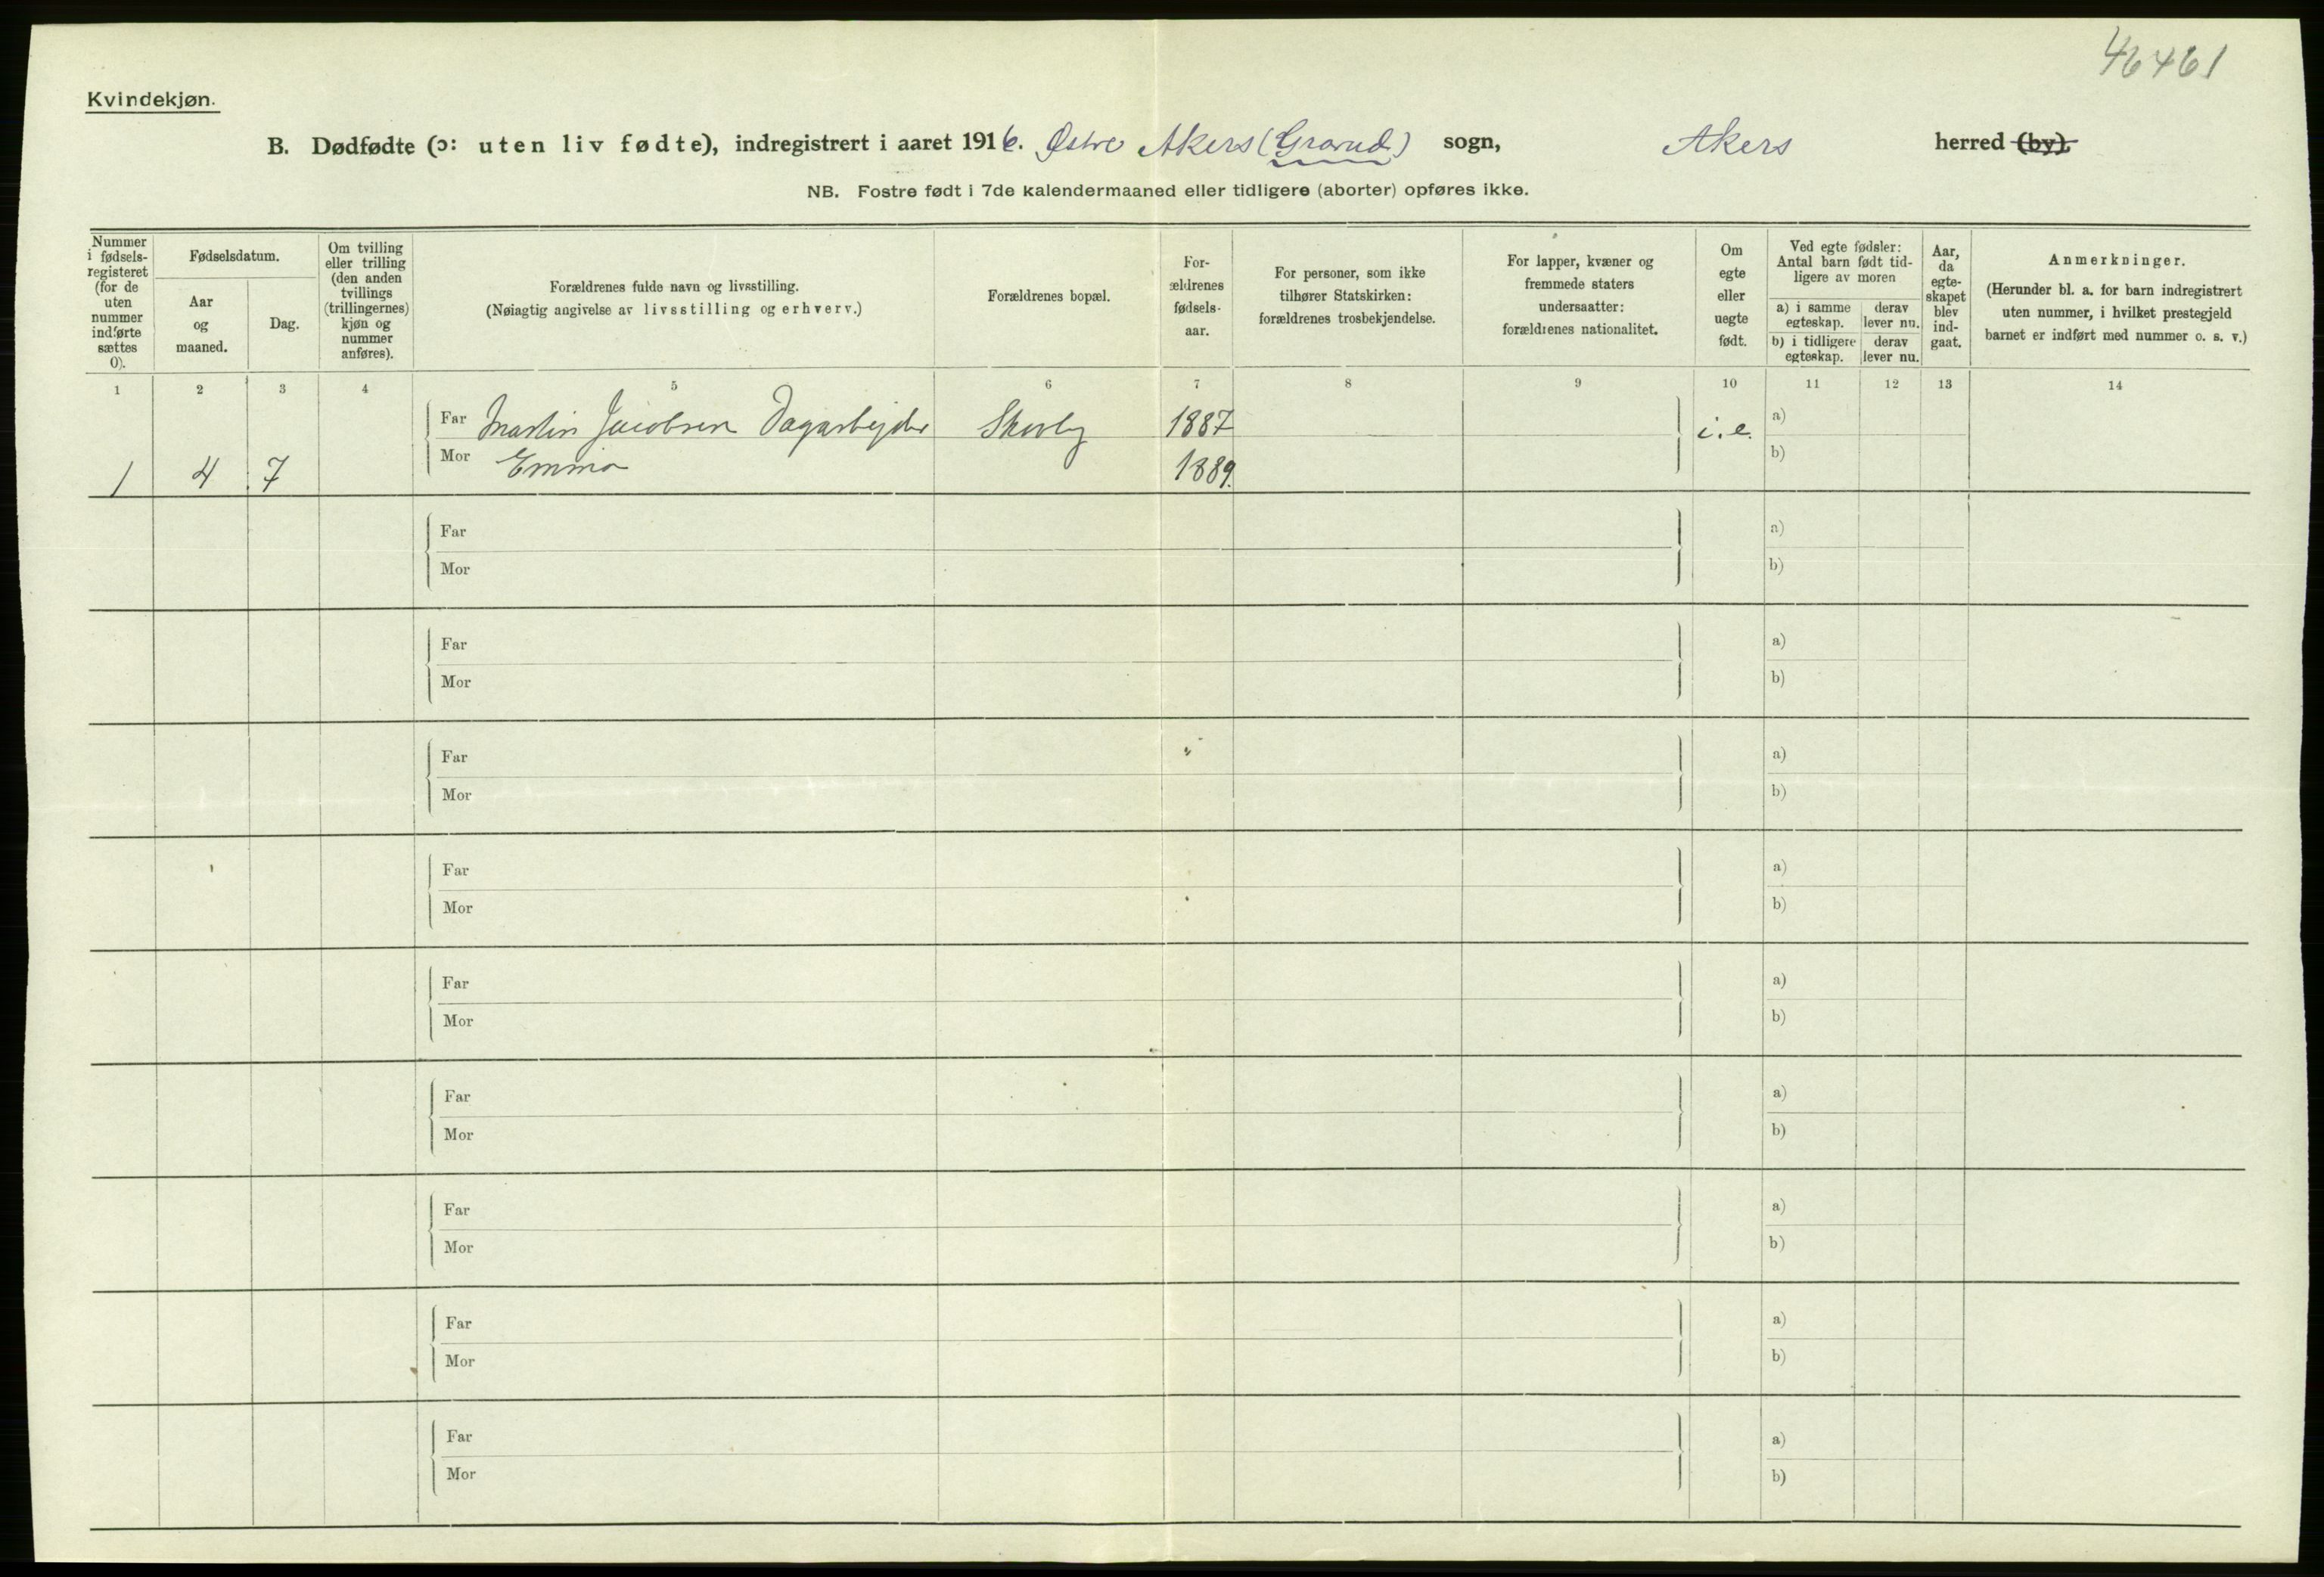 46461
Kvindekjøn.
B. Dødfødte (ɔ: uten liv fødte), indregistrert i aaret 1916. Østre Akers (Grorud) sogn, Akers herred (by).
NB. Fostre født i 7de kalendermaaned eller tidligere (aborter) opføres ikke.
Nummer
i fødsels-
registeret
(for de
uten
nummer
indførte
sættes
0).
Fødselsdatum.
Aar
og
maaned.
Dag.
Om tvilling
eller trilling
(den anden
tvillings
(trillingernes)
kjøn og
nummer
anføres).
Forældrenes fulde navn og livsstilling.
(Nøiagtig angivelse av livsstilling og erhverv.)
Forældrenes bopæl.
For-
ældrenes
fødsels-
aar.
For personer, som ikke
tilhører Statskirken:
forældrenes trosbekjendelse.
For lapper, kvæner og
fremmede staters
undersaatter:
forældrenes nationalitet.
Om
egte
eller
uegte
født.
Ved egte fødsler:
Antal barn født tid-
ligere av moren
a) i samme
egteskap.
derav
lever nu.
b) i tidligere
egteskap.
derav
lever nu.
Aar,
da
egte-
skapet
blev
ind-
gaat.
Anmerkninger.
(Herunder bl. a. for barn indregistrert
uten nummer, i hvilket prestegjeld
barnet er indført med nummer o. s. v.)
1 2 3 4 5 6 7 8 9 10 11 12 13 14
Far Martin Jacobsen Dagarbejder 1887 i.e. a)
1 4 7 Mor Emma 1889. b)
Far a)
Mor b)
Far a)
Mor b)
Far a)
Mor b)
Far a)
Mor b)
Far a)
Mor b)
Far a)
Mor b)
Far a)
Mor b)
Far a)
Mor b)
Far a)
Mor b)